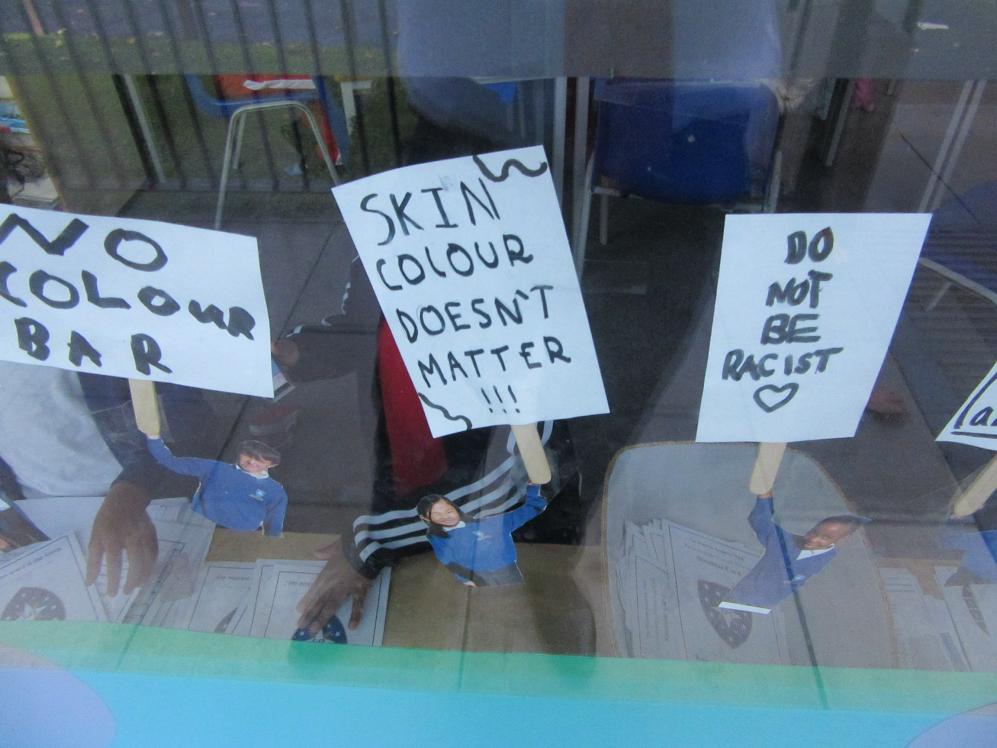 NO
COLOUR
BAR
SKIN
COLOUR
DOESN'T
MATTER
!!!
DO
NOT
BE
RACIST